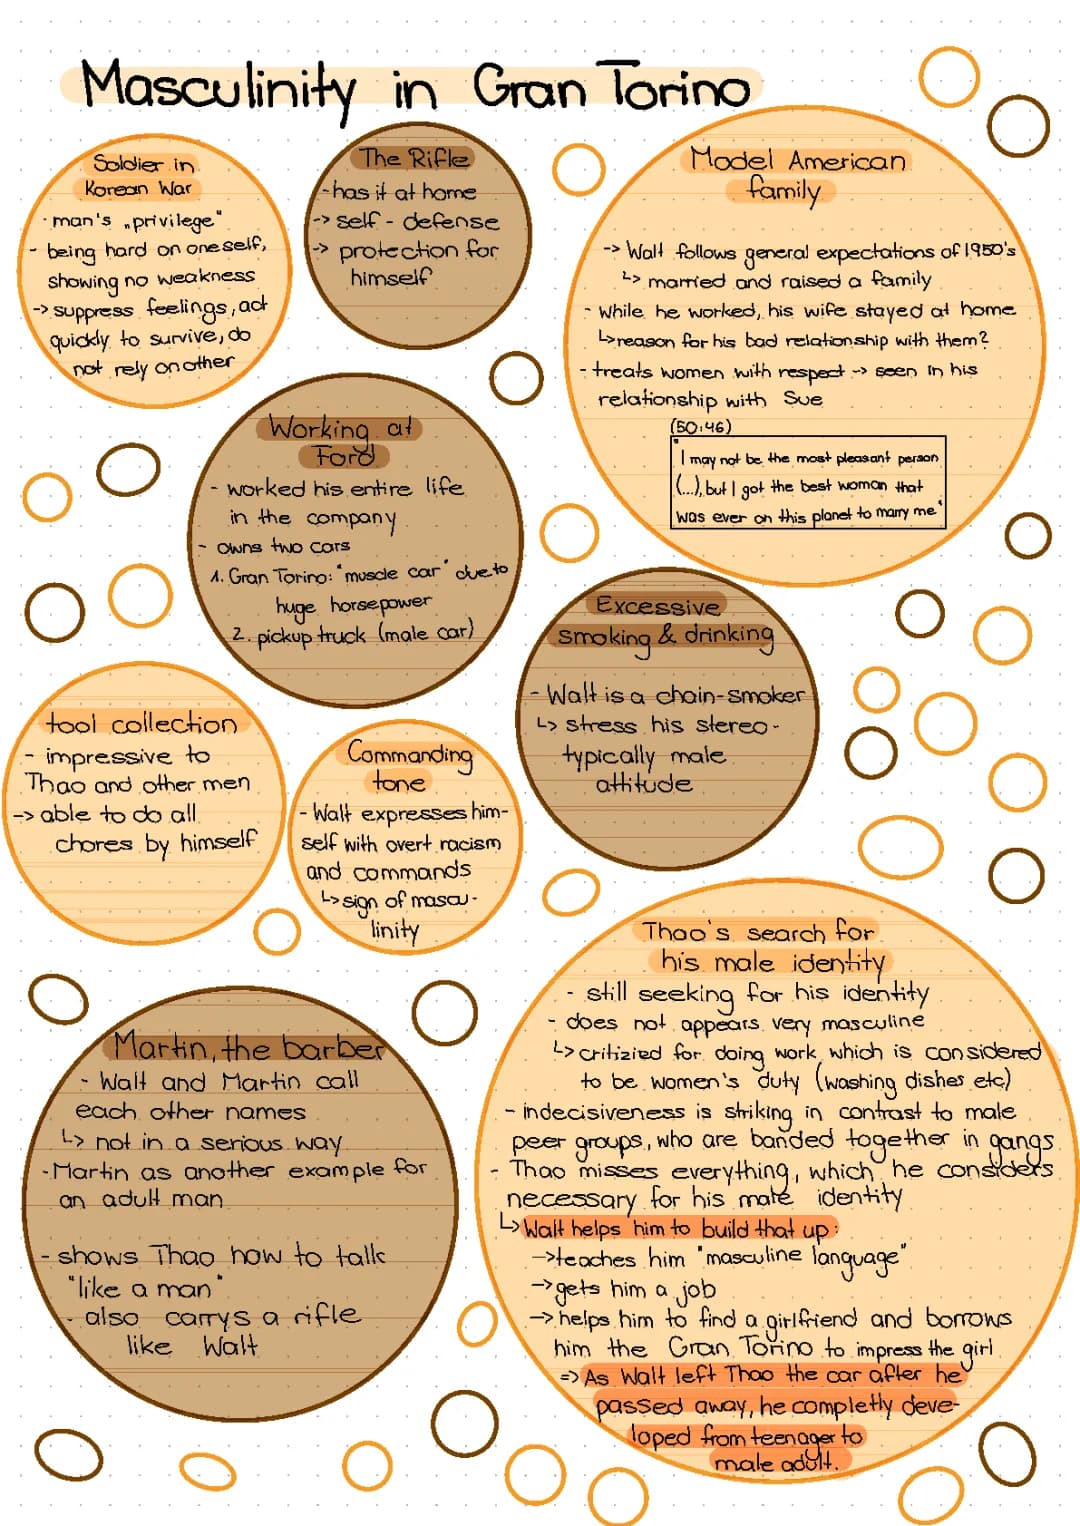 Masculinity in Gran Torino
Soldier in
Korean War
· man's „privilege"
- being hard on oneself,
showing no weakness
-> suppress feelings, act
quickly to survive, do
not rely on other
The Rifle
- has it at home
-> self-defense
-> protection for
himself
Model American
family
-> Walt follows general expectations of 1950's
↳ married and raised a family
- while he worked, his wife stayed at home
↳ reason for his bad relationship with them?
- treats women with respect -> seen in his
relationship with Sue
(50:46)
"I may not be the most pleasant person
(...), but I got the best woman that
was ever on this planet to marry me"
Working at
Ford
- worked his entire life
in the company
- owns two cars
1. Gran Torino: "muscle car" due to
huge horsepower
2. pickup truck (male car)
Excessive
smoking & drinking
- Walt is a chain-smoker
↳ stress his stereo-
typically male
attitude
tool collection
- impressive to
Thao and other men
-> able to do all
chores by himself
Commanding
tone
- Walt expresses him-
self with overt racism
and commands
↳ sign of mascu-
linity
Martin, the barber
- Walt and Martin call
each other names
↳ not in a serious way
- Martin as another example for
an adult man
- shows Thao how to talk
"like a man"
- also carrys a rifle
like Walt
Thao's search for
his male identity
- still seeking for his identity
- does not appears very masculine
↳ critizied for doing work which is considered
to be women's duty (washing dishes etc)
- indecisiveness is striking in contrast to male
peer groups, who are banded together in gangs
- Thao misses everything, which he considers
necessary for his male identity
↳ Walt helps him to build that up:
-> teaches him "masculine language"
-> gets him a job
-> helps him to find a girlfriend and borrows
him the Gran Torino to impress the girl
=> As Walt left Thao the car after he
passed away, he completly deve-
loped from teenager to
male adult.